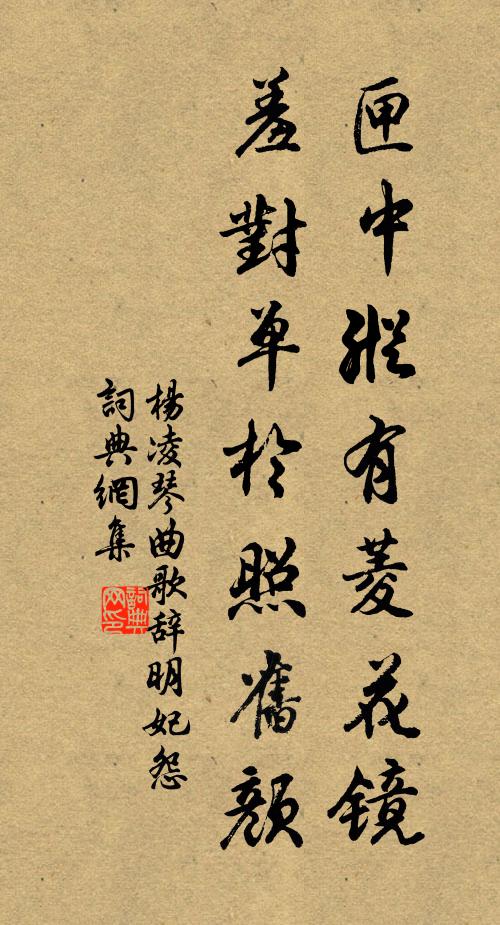 匣中縱有菱花鏡
羞對单於照舊顏
楊凌琴曲歌辞明妃怨
詞典網集
詞典网印